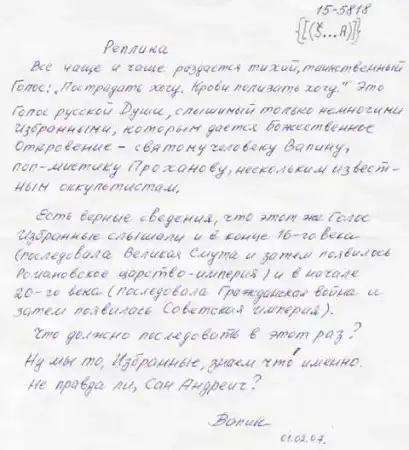 15-5818
{[(ξ...A)]}
Реплика
Все чаще и чаще раздается тихий, таинственный
Голос: „Пострадать хочу. Крови полизать хочу." Это
Голос русской Души, слышимый только немногими
Избранными, которым дается Божественное
Откровение – святому человеку Вапину,
поп-мистику Проханову, нескольким извест-
ным оккультистам.
Есть верные сведения, что этот же Голос
Избранные слышали и в конце 16-го века
(последовала Великая Смута и затем появилось
Романовское царство-империя) и в начале
20-го века (последовала Гражданская война и
затем появилась Советская империя).
Что должно последовать в этот раз?
Ну мы то, Избранные, знаем что именно.
Не правда ли, Сан Андреич?
Вапик
01.02.07.